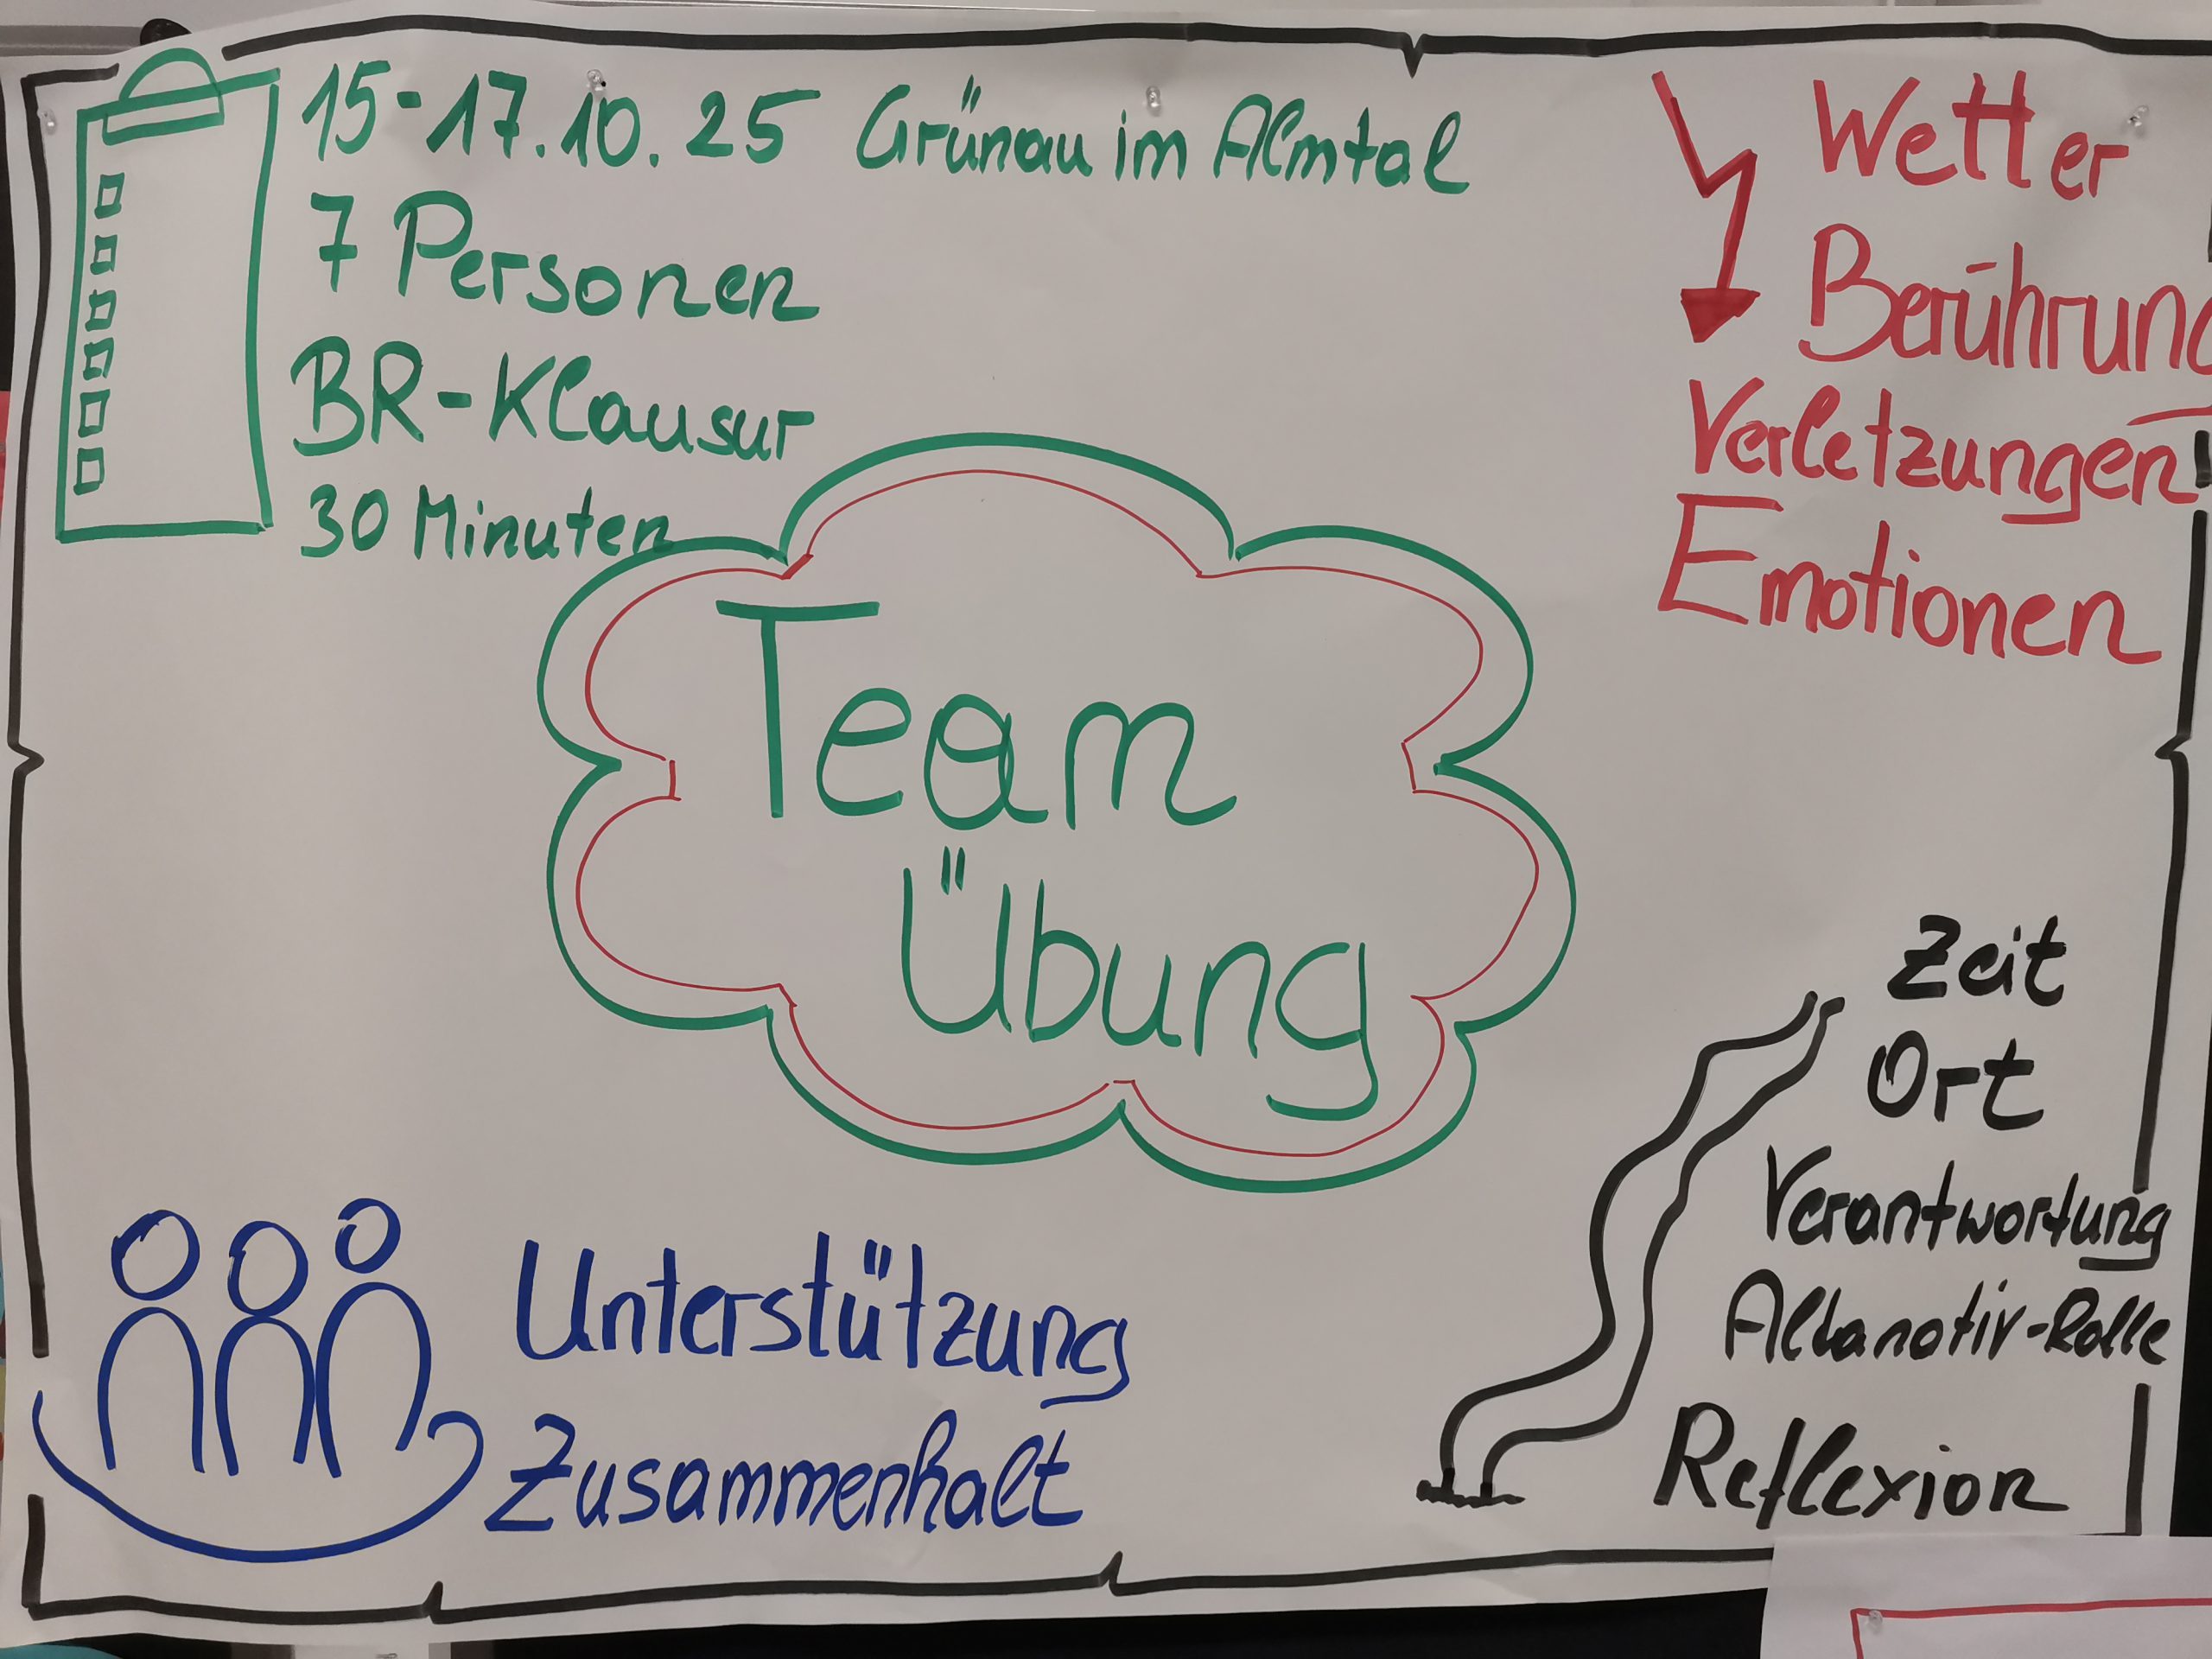 15-17.10.25 Grünau im Almtal
7 Personen
BR-Klausur
30 Minuten
Wetter
Berührung
Verletzungen
Emotionen
Team
Übung
Unterstützung
Zusammenhalt
Zeit
Ort
Verantwortung
-Rolle
Reflexion